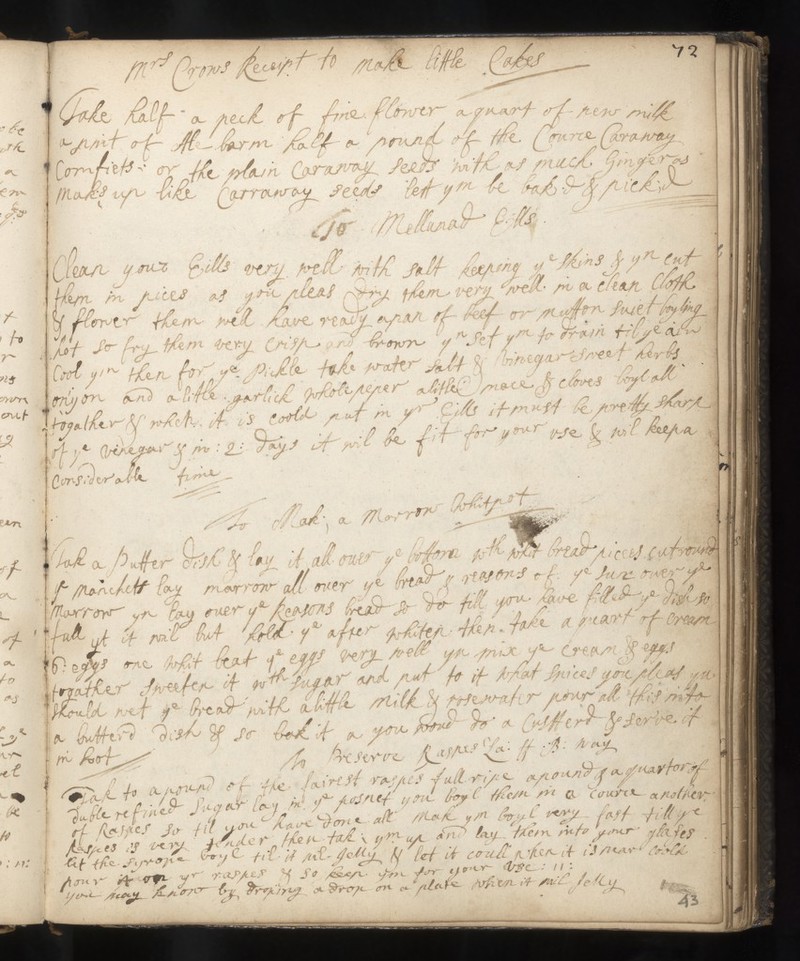 72
Mrs Crows Receipt to make little Cakes
Take half a peck of fine flower a quart of new milk
a pint of Ale barm half a pound of the Cource Caraway
Comfiets: or the plain Caraway seeds with as much Ginger as
makes up like Carraway seeds lett ym be bak'd & pick'd
To Mellanad Eills
Clean your Eills very well with salt keeping ye skins & yn cut
them in pices as you pleas Dry them very well in a clean Cloth
& flower them well have ready a pan of beef or mutton suiet boyling
hot so fry them very Crisp and brown yn set ym to drain til ye are
Cool yn then for ye Pickle take water salt & vinegar sweet herbs
onyon and a litle garlick whole peper a litle mace & cloves boyl all
togather & when it is coold put in yr Eills it must be pretty sharp
of ye vinegar & in: 2: days it wil be fit for your use & wil keep a
considerable time
To Mak a Morrow Whitpot
Tak a Putter dish & lay it all over ye bottom wth whit bread pices cut round
manchett lay marrow all over ye bread & reasons of ye sun over ye
Marrow yn lay over ye Reasons bread so do till you have filled ye dish so
full yt it wil but hold ye after whiten then take a quart of cream
6: eggs one whit beat ye eggs very well yn mix ye cream & eggs
togather sweeten it wth sugar and put to it what spices you pleas yu
should wet ye bread with a little milk & rosewater pour all this into
a butterd dish & so bak it a you woud do a Custerd & serve it
in hoot
To Preserve Raspes La: ff: B: way
Tak to a pound of the fairest raspes full ripe a pound & a quartor of
duble refined Sugar lay in ye posnet you boyl them in a cource another
of Raspes so til you have done all mak ym boyl very fast till ye
Raspes is very tender then tak ym up and lay them into your glases
let the syrope boyl til it wil Jelly & let it coull when it is near coold
pour it on yr raspes & so keep ym for your use: 11:
you may know by droping a drop on a plate when it wil Jelly
43